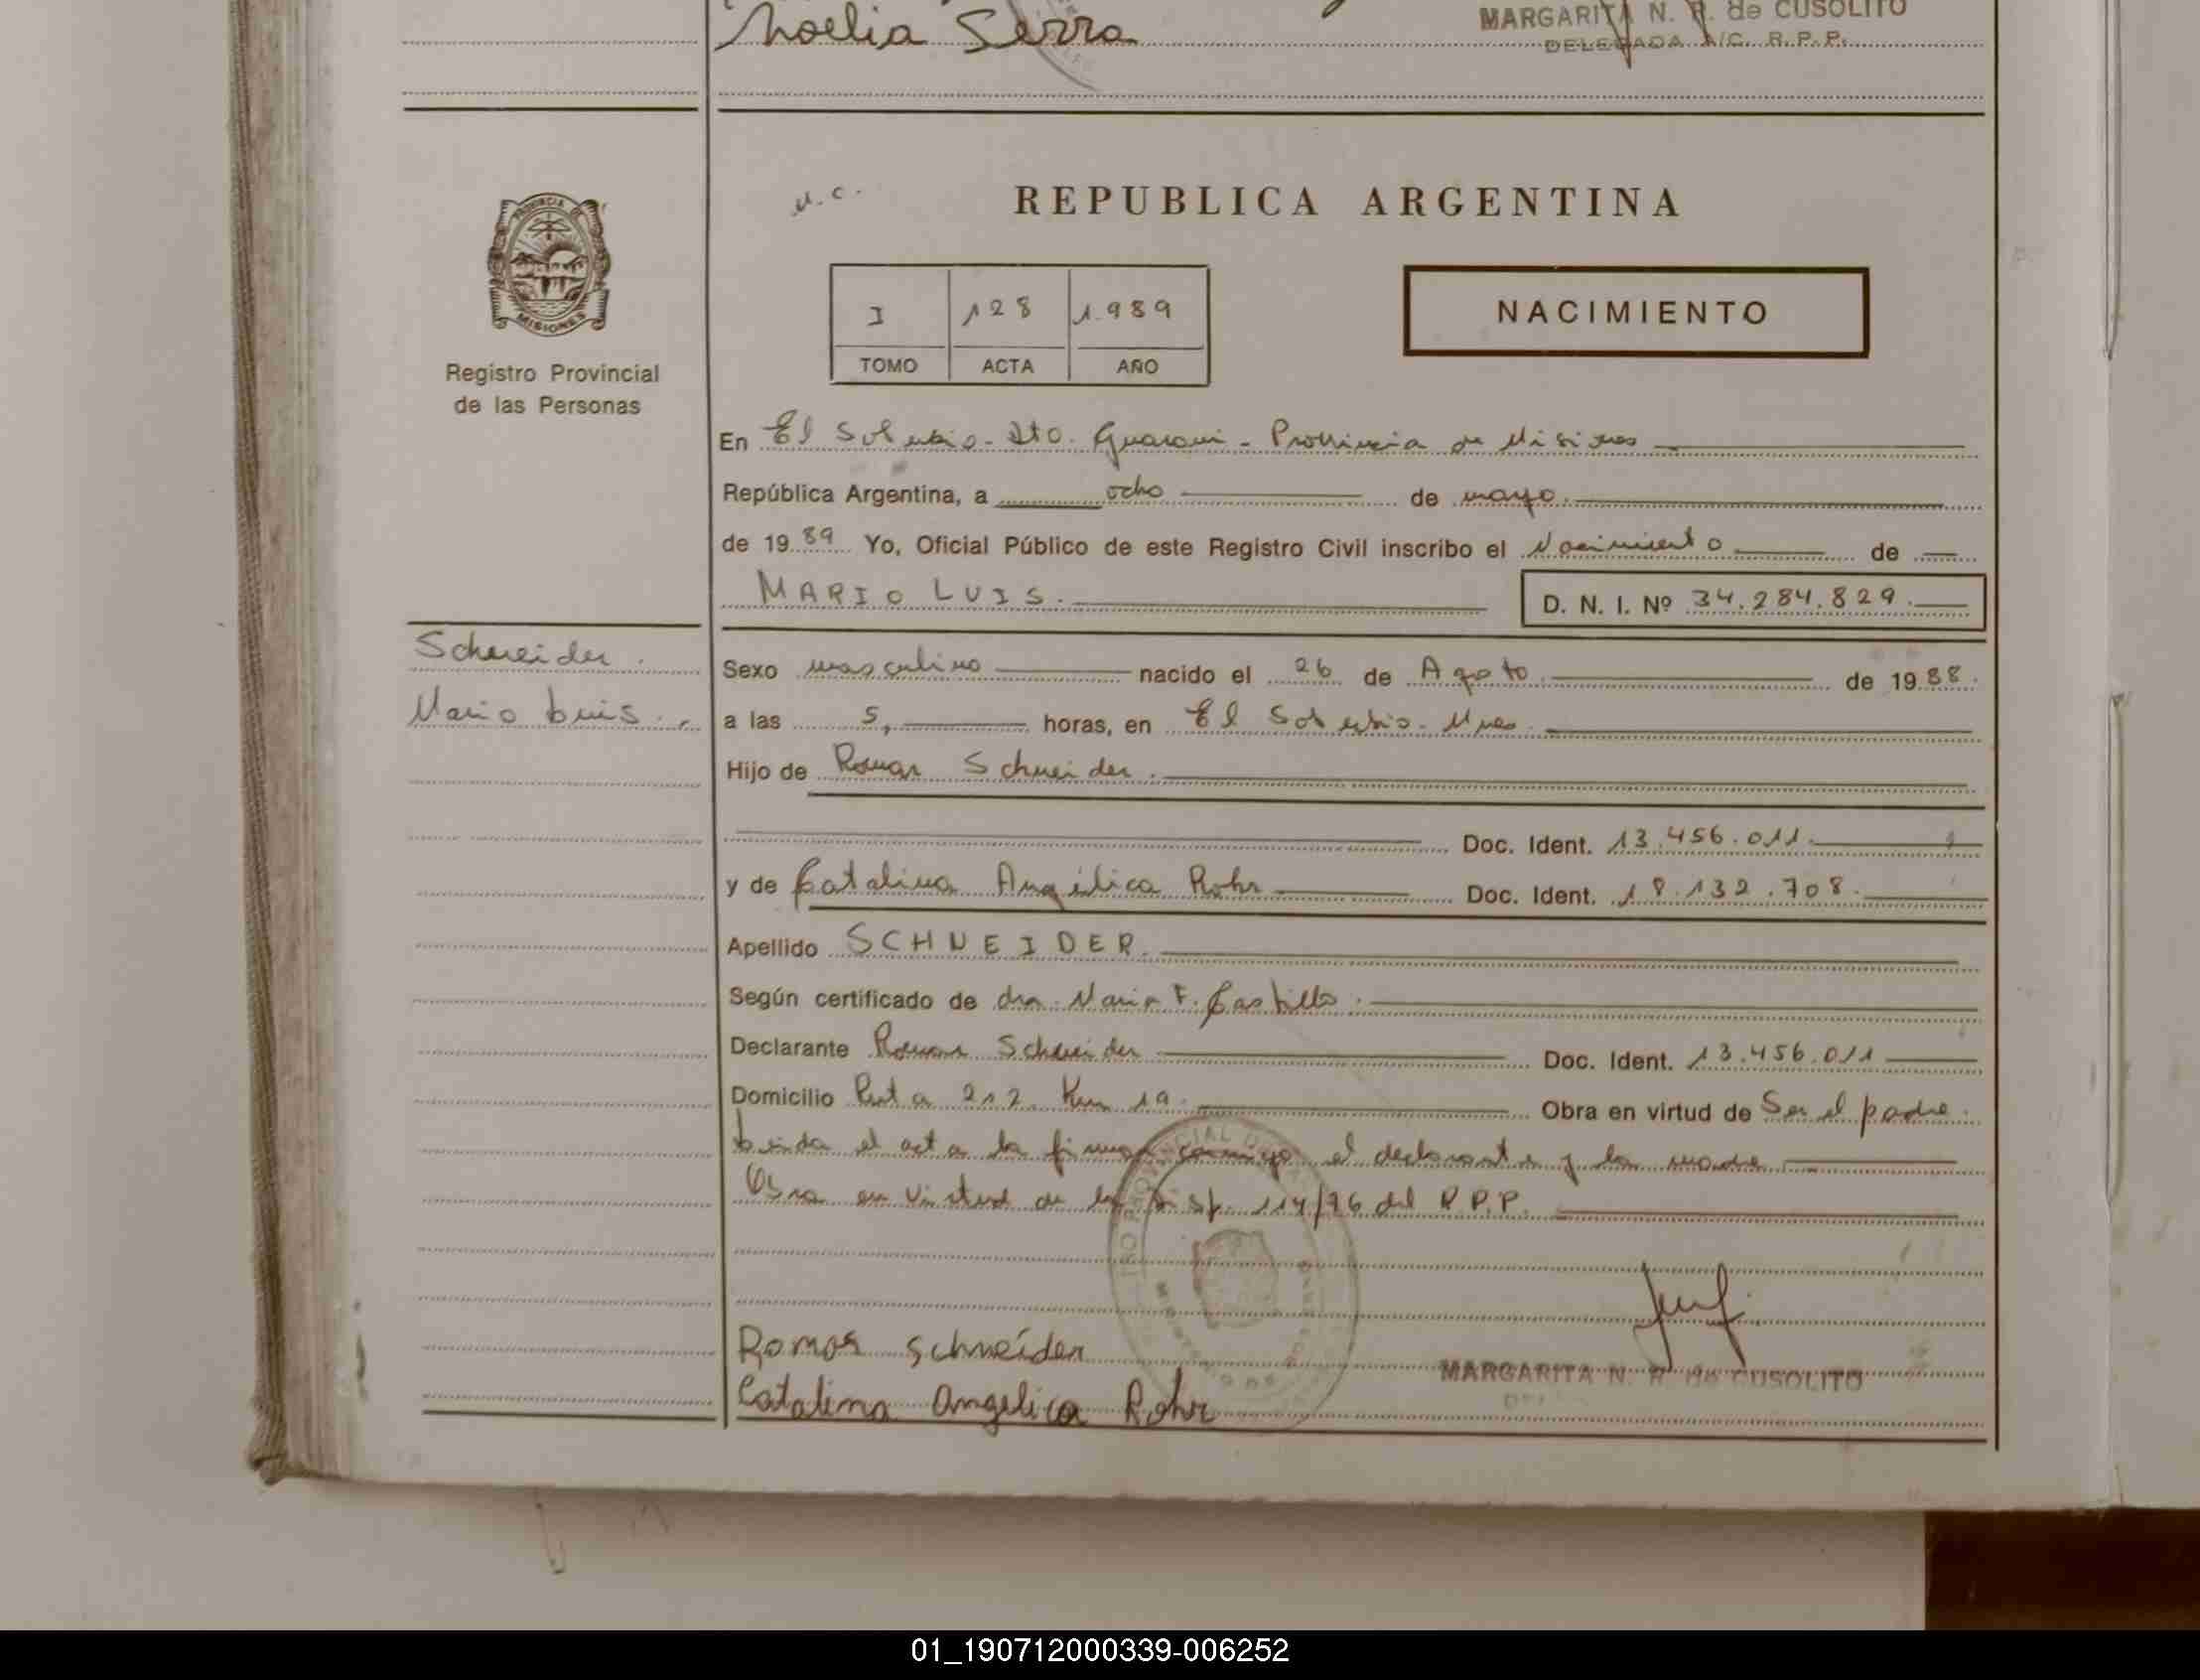 Noelia Serra
MARGARITA N. R. de CUSOLITO
DELEGADA A/C. R.P.P.
u.c.
REPUBLICA ARGENTINA
PROVINCIA DE
MISIONES
Registro Provincial
de las Personas
I 128 1.989
TOMO ACTA AÑO
NACIMIENTO
En El Soberbio - Dto. Guarani - Provincia de Misiones
República Argentina, a ocho de mayo.
de 1989 Yo, Oficial Público de este Registro Civil inscribo el Nacimiento de
MARIO LUIS. D. N. I. Nº 34.284.829.
Schneider.
Mario Luis.
Sexo masculino nacido el 26 de Agosto de 1988.
a las 5, horas, en El Soberbio - Mnes.
Hijo de Romas Schneider.
Doc. Ident. 13.456.011.
y de Catalina Angelica Rohr Doc. Ident. 18.132.708.
Apellido SCHNEIDER.
Según certificado de dra. Maria F. Castillo.
Declarante Romas Schneider Doc. Ident. 13.456.011
Domicilio Ruta 212 Km 19. Obra en virtud de Ser el padre.
Leida el acta la firman conmigo el declarante y la madre
Obra en virtud de la Disp. 114/76 del R.P.P.
Romas Schneider
Catalina Angelica Rohr
MARGARITA N. R. de CUSOLITO
01_190712000339-006252